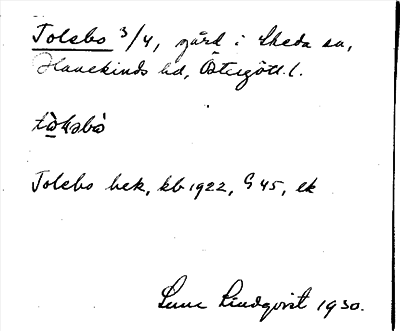 Tolsbo 3/4, gård i Skeda sn,
Hanekinds hd, Östergötl. l.
Tolsbo bek, kb 1922, G 45, ek
Sune Lindqvist 1930.